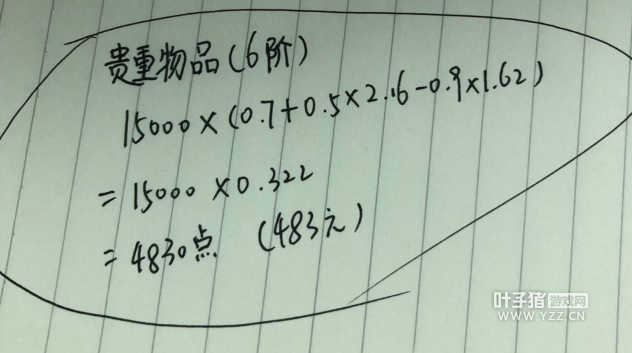 贵重物品(6阶)
15000×(0.7+0.5×2.16-0.9×1.62)
=15000×0.322
=4830点 (483元)
叶子猪游戏网
WWW.YZZ.CN